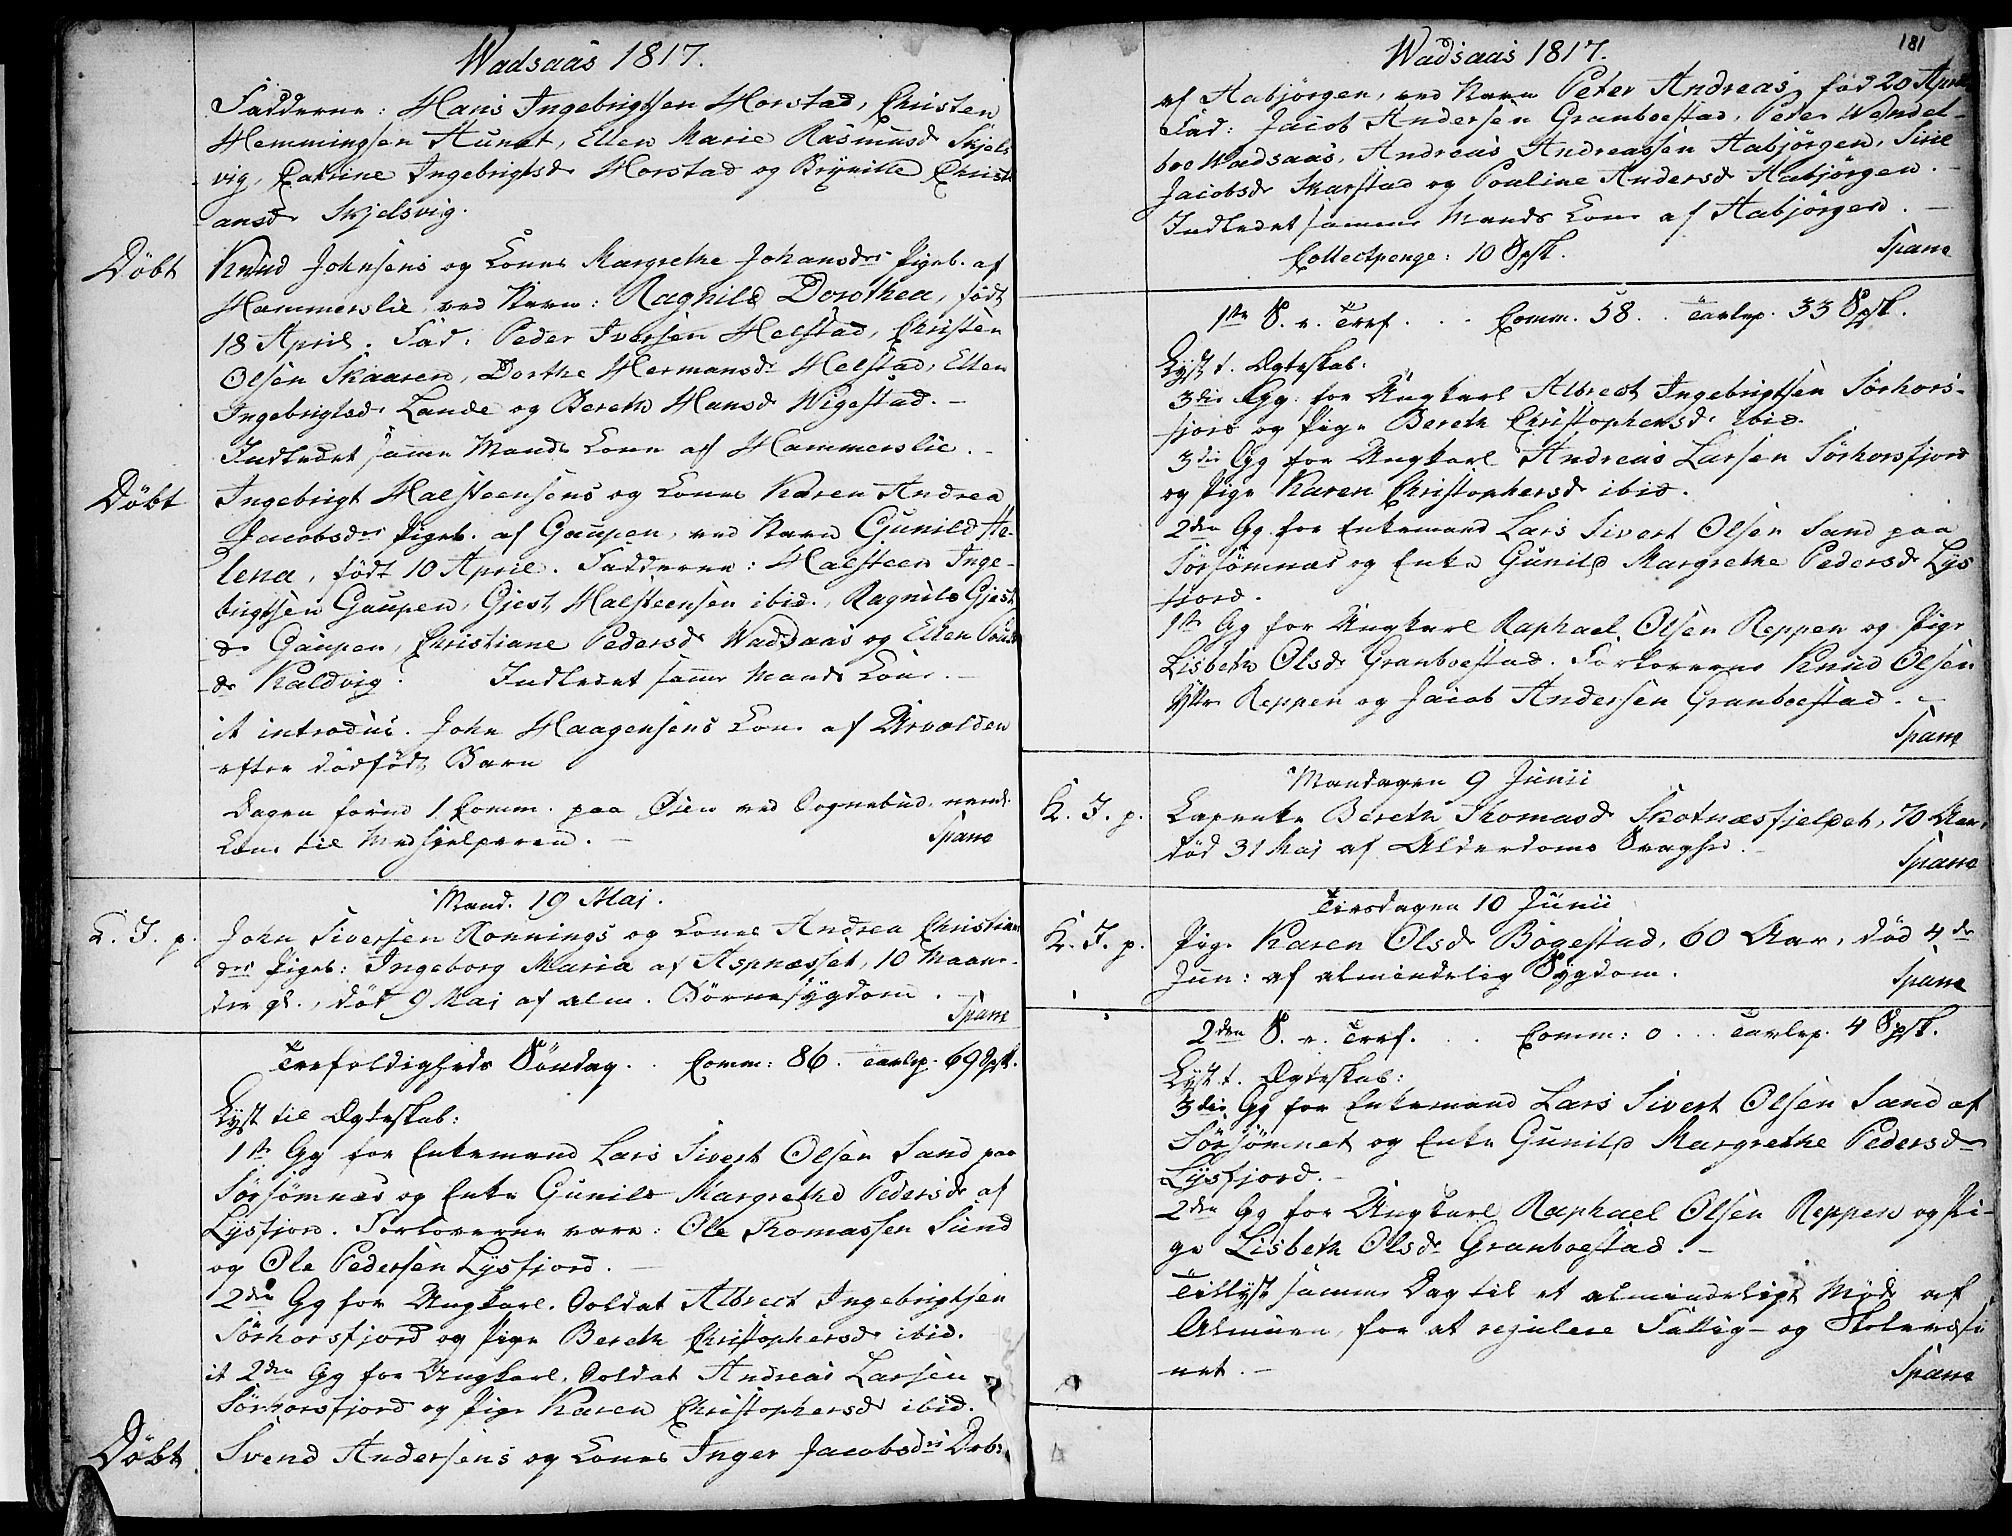 Wadsaas 1817.
Fadderne: Hans Ingebrigtsen Horstad, Christen
Hemmingsen Aunet, Ellen Marie Rasmusd. Skjels
vig, Catrine Ingebrigtsd. Horstad og Christi
ansd. Skjelsvig.
Döbt Knud Johnsens og Kones Margrethe Johansdr Pigeb. af
Hammerslie, ved Navn: Ragnild Dorothea, födt
18 April. Fad: Peder Iversen Helstad, Christen
Olsen Skaaren, Dorthe Hermansd. Helstad, Ellen
Ingebrigtsd. Lande og Bereth Hansd. Wigestad. -
Indledet samme Mands Kone af Hammerslie. -
Döbt Ingebrigt Halsteensens og Kones Karen Andrea
Jacobsdr Pigeb. af Gaupen, ved Navn Gunild He-
lena, födt 10 April. Fadderne: Halsteen Inge-
brigtsen Gaupen, Gjest Halsteensen ibid., Ragnild Gjest
d. Gaupen, Christiane Pedersd. Wadsaas og Ellen
d. Kaldvig. Indledet samme Mands Kone. -
it introduc. John Haagensens Kone af Urvolden
efter dödfödt Barn
Dagen forud 1 Comm. paa Öien ved Sognebud, neml.
Kone til Medhjelperen. -
Spame
Mand. 19 Maj.
K. J. p. John Siversen Ronnings og Kones Andrea Christians
dr Pigeb: Ingeborg Maria af Aspnæsset, 10 Maane-
der gl., död 9 Maj af alm. Börnesygdom.
Spame
Trefoldigheds Söndag. . Comm: 86. Tavlep. 69 Spsk.
Lyst til Ægteskab:
1ste Gg for Enkemand Lars Sivert Olsen Sand paa
Sörsömnæs og Enke Gunild Margrethe Pedersd. af
Lysfjord. Forloverne vare: Ole Thomassen Sund
og Ole Pedersen Lysfjord. -
2den Gg for Ungkarl. Soldat Albrect Ingebrigtsen
Sörhorsfjord og Pige Bereth Christophersd. ibid.
it 2den Gg for Ungkarl. Soldat Andreas Larsen
Sörhorsfjord og Pige Karen Christophersd. ibid.
Döbt Svend Andersens og Kones Inger Jacobsdrs
Wadsaas 1817.
181
af Aabjörgen, ved Navn Peter Andreas, föd 20 April
Fad: Jacob Andersen Granboestad, Peder Wendel-
boe Wadsaas, Andreas Andreassen Aabjörgen, Sirie
Jacobsd. Skarstad og Pouline Andersd. Aabjörgen. -
Indledet samme Mands Kone af Aabjörgen. -
Collectpenge: 10 Spsk.
Spame
1ste S. e. Tref. . . . Comm. 58. . Tavlep. 33 Spsk.
Lyst t. Ægteskab:
3die Gg. for Ungkarl Albrect Ingebrigtsen Sörhors-
fjord og Pige Bereth Christophersd. ibid.
3die Gg for Ungkarl Andreas Larsen Sörhorsfjord
og Pige Karen Christophersd. ibid.
2den Gg for Enkemand Lars Sivert Olsen Sand paa
Sörsömnæs og Enke Gunild Margrethe Pedersd. Lys
fjord.
1ste Gg for Ungkarl Raphael Olsen Reppen og Pige
Lisbeth Olsd. Granboestad. Forloverne Knud Olsen
Yttre Reppen og Jacob Andersen Granboestad. -
Spame
Mandagen 9 Junii
K. J. p. Bereth Thomasd. Skotnæsfjeldet, 70 Aar,
död 31 Maj af Alderdoms Svaghed. -
Spame
Tirsdagen 10 Junii
K. J. p. Pige Karen Olsd. Bögestad, 60 Aar, död 4de
Jun: af almindelig Sygdom.
Spame
2den S. e. Tref. . . . Comm: 0 . . . Tavlep. 4 Spsk.
Lyst t. Ægteskab:
3die Gg for Enkemand Lars Sivert Olsen Sand af
Sörsömnet og Enke Gunild Margrethe Pedersd.
Lysfjord. -
2den Gg for Ungkarl Raphael Olsen Reppen og Pi-
ge Lisbeth Olsd. Granboestad. -
Tillyst samme Dag til et almindeligt Möde af
Almuen, for at regulere Fattig- og Skolevæse
net. -
Spame